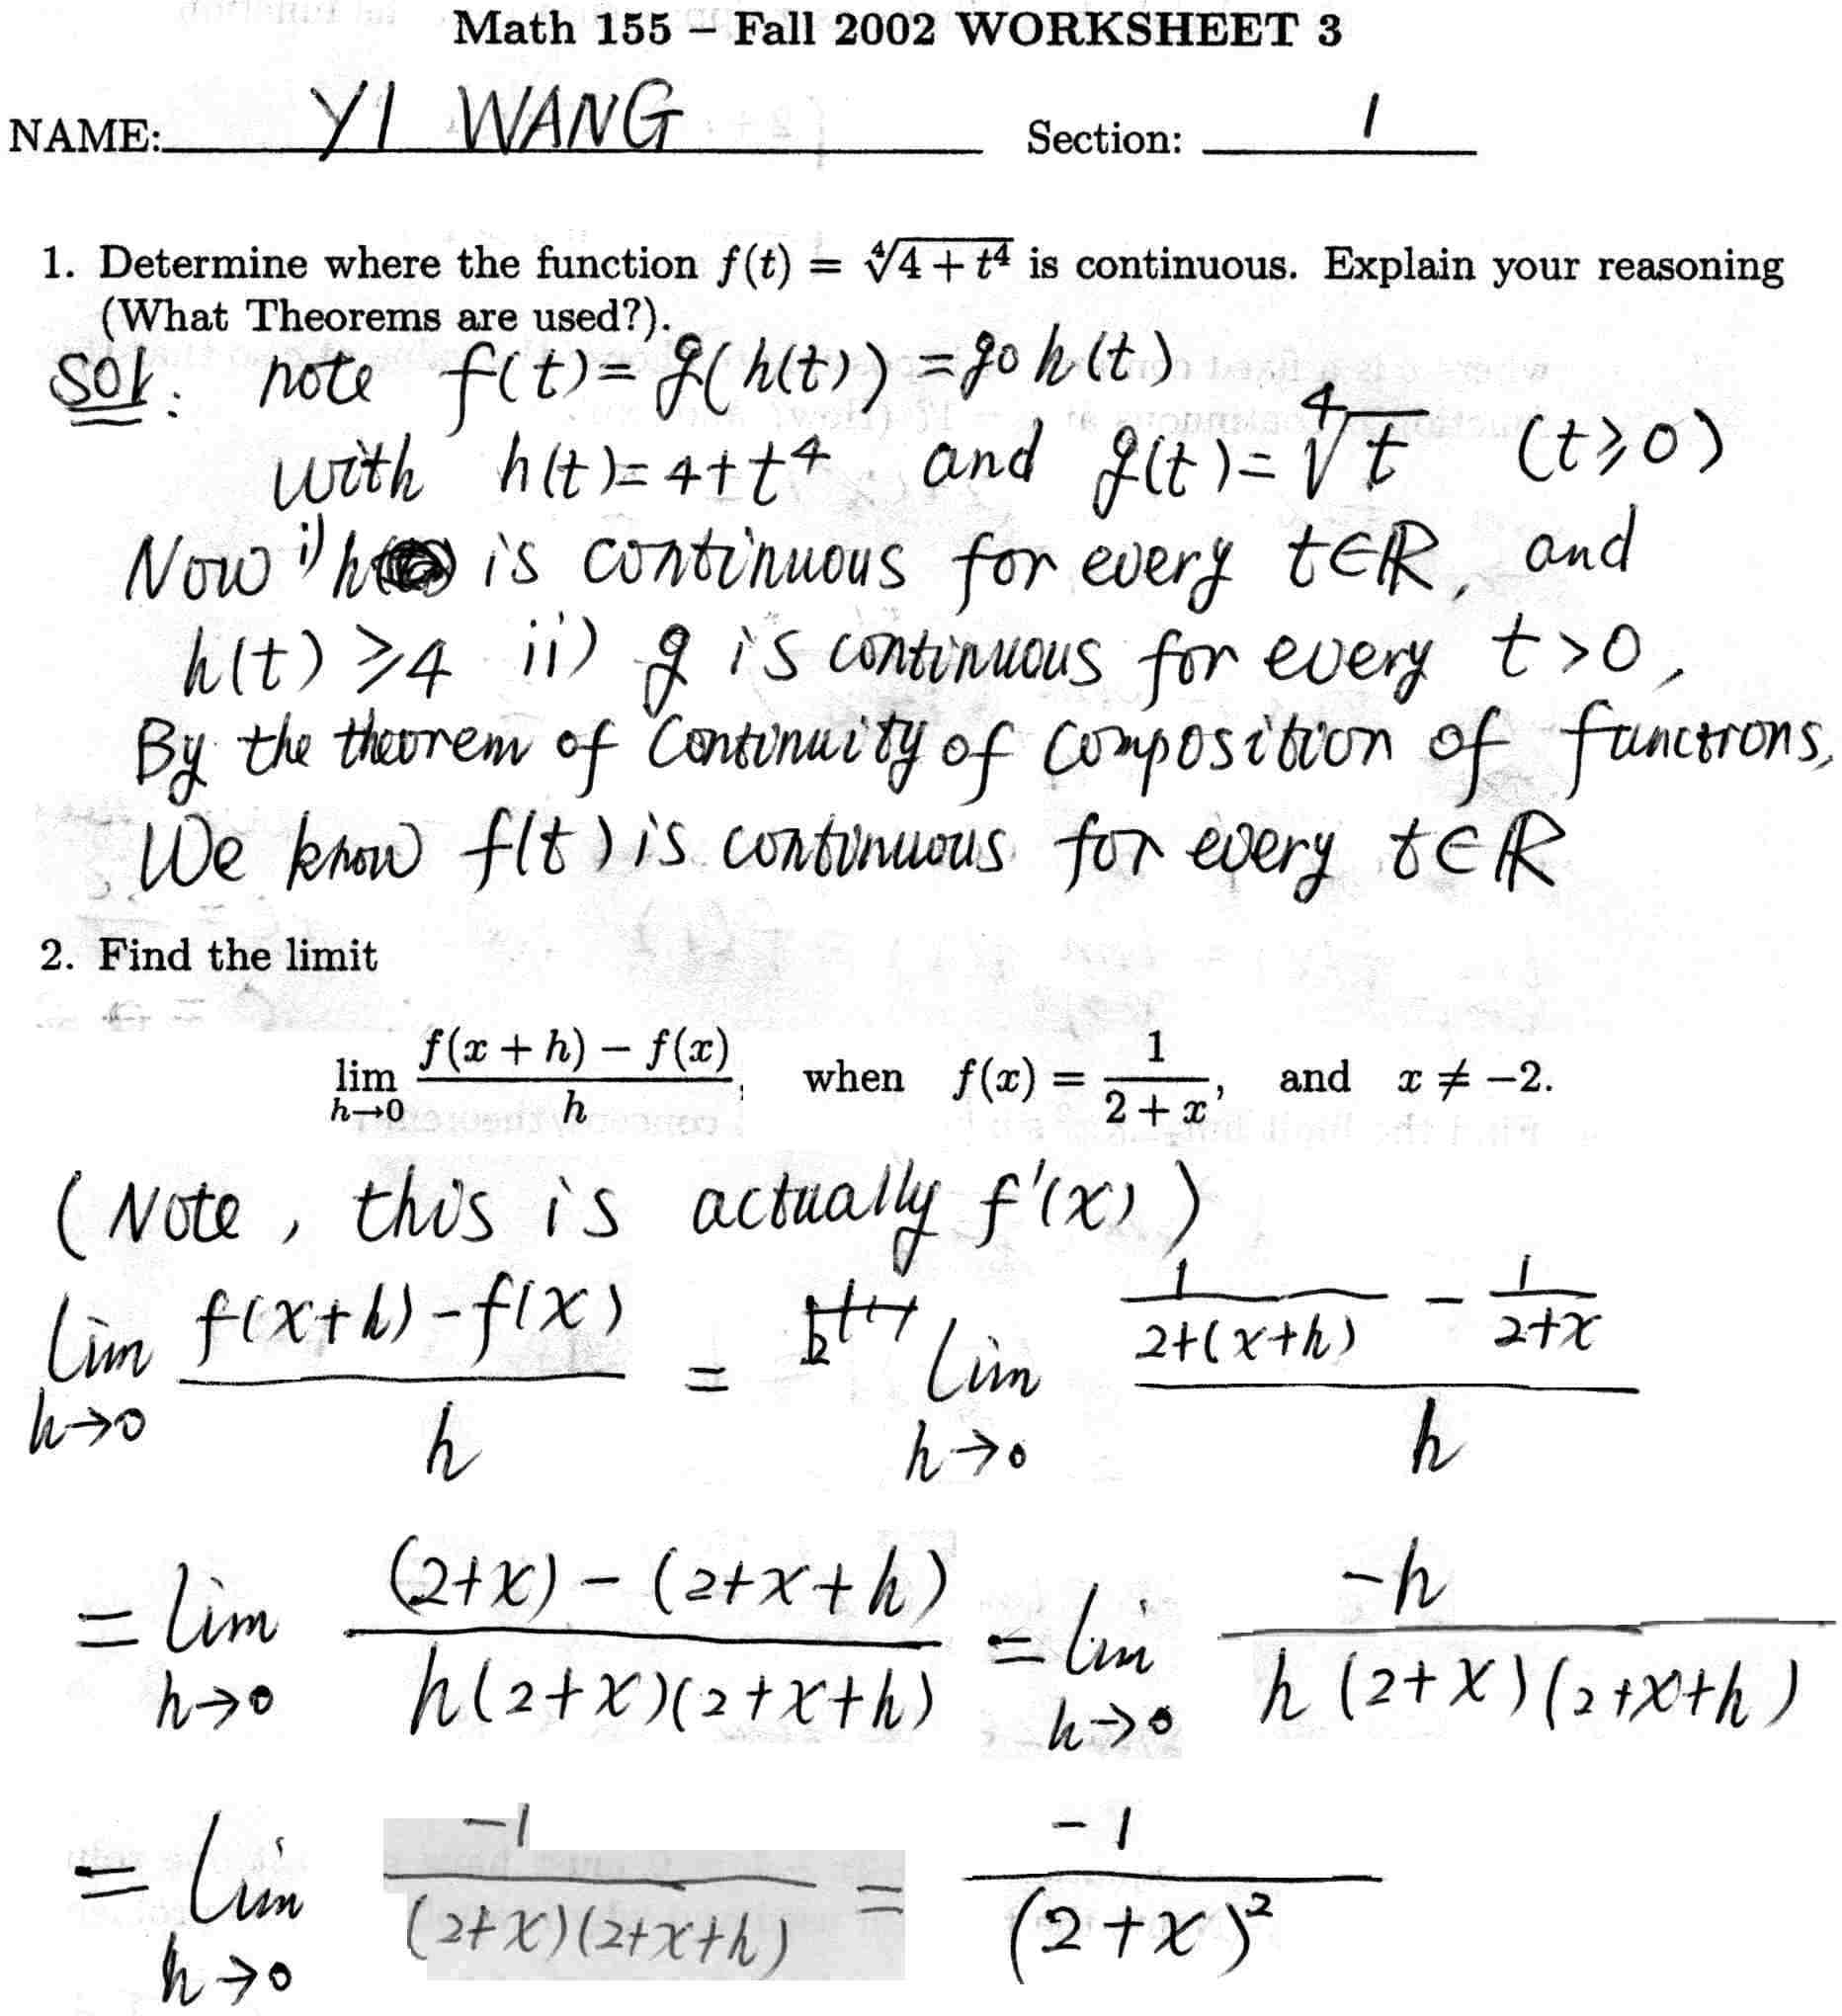 Math 155 – Fall 2002 WORKSHEET 3
NAME: YI WANG Section: 1
1. Determine where the function f(t) = ∜(4 + t⁴) is continuous. Explain your reasoning
(What Theorems are used?).
Sol: note f(t) = g(h(t)) = g∘h(t)
with h(t) = 4+t⁴ and g(t) = ∜t (t⩾0)
Now i) h is continuous for every t∈ℝ, and
h(t) ⩾4 ii) g is continuous for every t>0,
By the theorem of Continuity of composition of functions,
We know f(t) is continuous for every t∈ℝ
2. Find the limit
lim h→0 (f(x + h) − f(x))/h, when f(x) = 1/(2 + x), and x ≠ −2.
(Note, this is actually f'(x))
lim h→0 (f(x+h) - f(x))/h = lim h→0 (1/(2+(x+h)) - 1/(2+x))/h
= lim h→0 ((2+x) - (2+x+h))/(h(2+x)(2+x+h)) = lim h→0 -h/(h(2+x)(2+x+h))
= lim h→0 -1/((2+x)(2+x+h)) = -1/(2+x)²